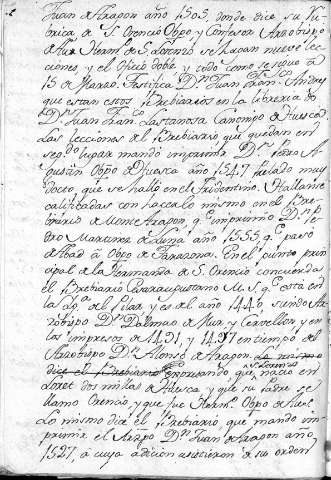 Juan de Aragon año 1505, donde dice su Ru
brica de S. Orencio Obpo, y Confesor Arzobispo
de Aux Herm.o de S. Lorenzo se hagan nueve lec
ciones, y el oficio doble, y todo como se sigue à
15 de Marzo. Testifica D.n Juan Fran.co Andres
que estan estos Brebiarios en la libreria de
D.n Juan Fran.co Lastanosa Canonigo de Huesca
Las lecciones del Brebiario que quedan en
seg.do lugar mandò imprimir D.n Pedro A
gustin Obpo de Huesca año 1547 Prelado muy
docto, que se hallò en el Tridentino. Hallanse
calificadas con hacer lo mismo en el Bre
biario de Monte Aragon, q.e imprimiò D.n Pe
dro Martinez de Luna año 1555 q.e pasò
de Abad à Obpo de Tarazona. En el punto prin
cipal de la Hermandad de S. Orencio concuerda
el Brebiario Cesaraugustano M.S. q.e està en
la del Asseo y es del año 1446, siendo Ar
zobispo D.n Dalmao de Mur, y Cervellon, y en
los impresos de 1491, y 1497 en tiempo del
Arzobispo D.n Alonso de Aragon. Lo mismo
dice el Brebiario que naciò en
Loret dos millas de Huesca, y que su Padre se
llamo Orencio, y que fue Herm.o Obpo de Aux.
Lo mismo dice el Brebiario que mandò im
primir el Arzpo D.n Juan de Aragon año
1527, à cuya adicion asistieron de su orden